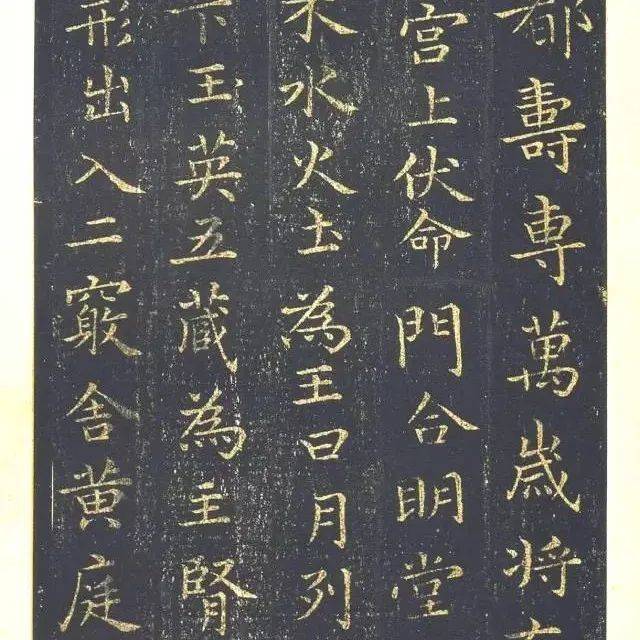 都壽専萬歳将
宫上伏命門合明堂
木水火土為王日月列
下玉英五蔵為主腎
形出入二竅舎黄庭